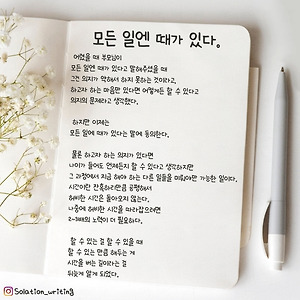 모든 일엔 때가 있다.
어렸을 때 부모님이
모든 일엔 때가 있다고 말해주었을 때
그건 의지가 약해서 하지 못하는 것이라고,
하고자 하는 마음만 있다면 어떻게든 할 수 있다고
의지의 문제라고 생각했다.
하지만 이제는
모든 일에 때가 있다는 말에 동의한다.
물론 하고자 하는 의지가 있다면
나이가 들어도 언제든지 할 수 있다고 생각하지만
그 과정에서 지금 해야 하는 다른 일들을 미뤄야만 가능한 일이다.
시간이란 잔혹하리만큼 공평해서
허비한 시간은 돌아오지 않는다.
나중에 허비한 시간을 따라잡으려면
2~3배의 노력이 더 필요하다.
할 수 있는 걸 할 수 있을 때
할 수 있는 만큼 해두는 게
시간을 버는 길이라는 걸
뒤늦게 알게 되었다.
@Solation_writing